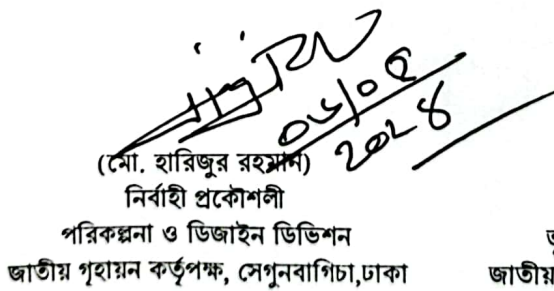 (মো. হারিজুর রহমান)
নির্বাহী প্রকৌশলী
পরিকল্পনা ও ডিজাইন ডিভিশন
জাতীয় গৃহায়ন কর্তৃপক্ষ, সেগুনবাগিচা,ঢাকা
জাতীয়